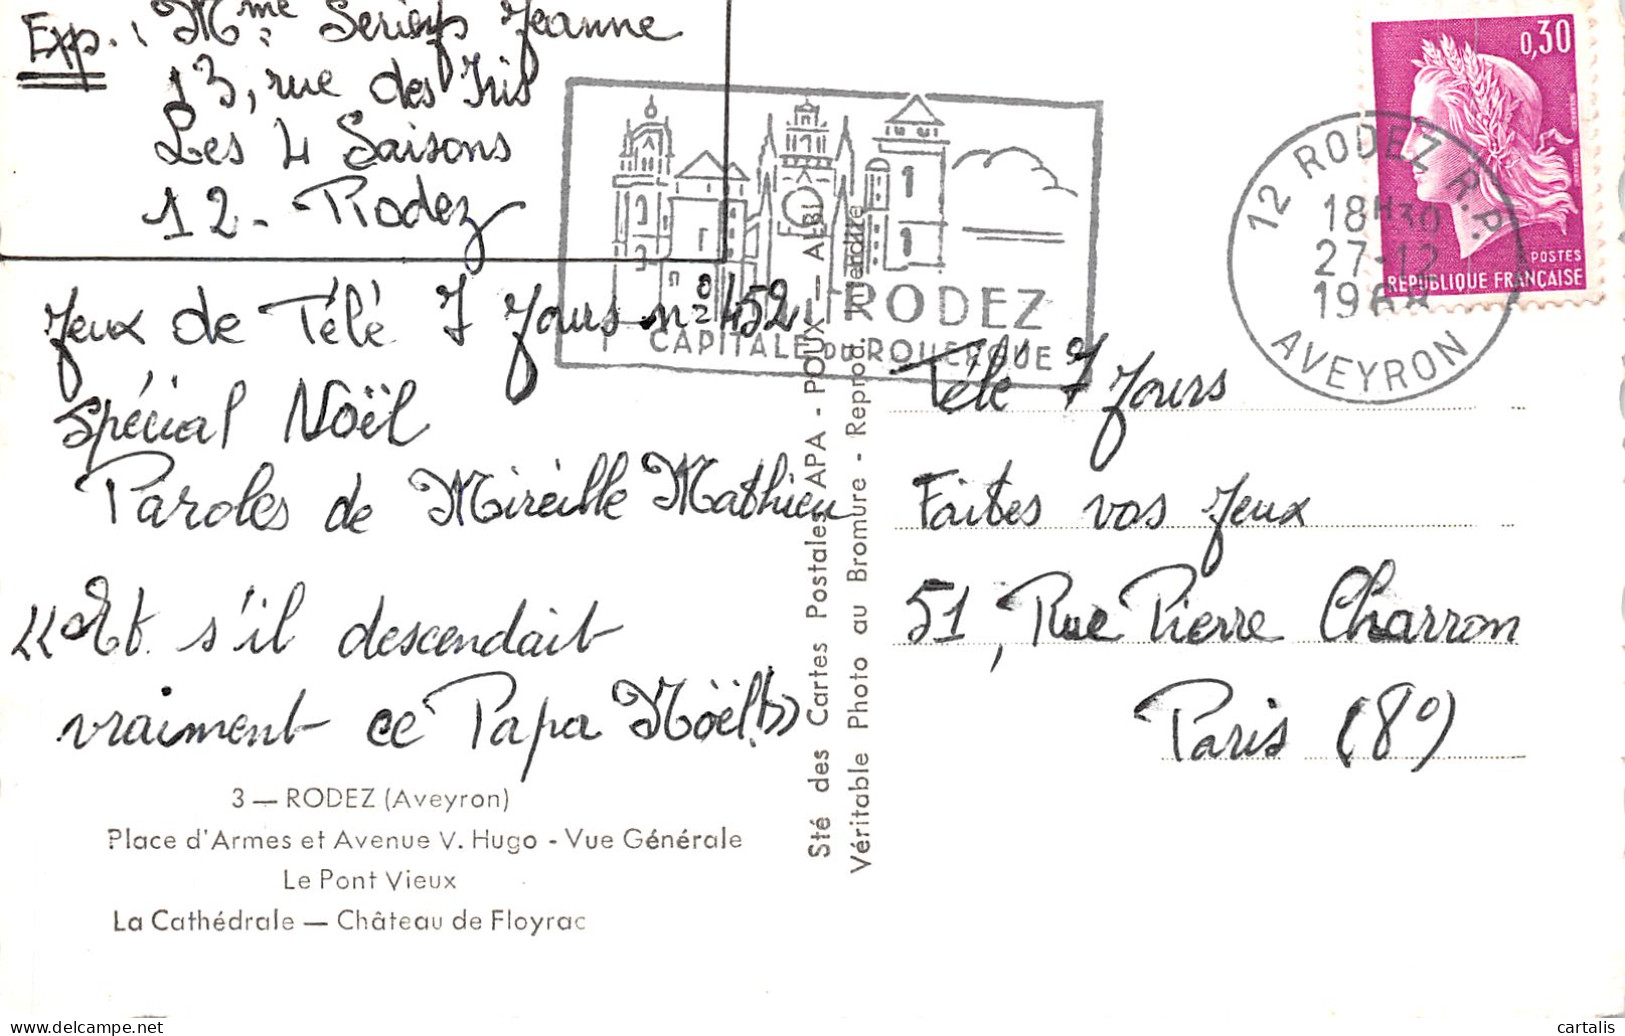 Exp. : Mme Jeanne
13, rue des Iris
Les 4 Saisons
12 - Rodez
Jeux de Télé 7 Jours no 452
Spécial Noël
Paroles de Mireille Mathieu
"Et s'il descendait
vraiment ce Papa Noël!"
3 — RODEZ (Aveyron)
Place d'Armes et Avenue V. Hugo - Vue Générale
Le Pont Vieux
La Cathédrale — Château de Floyrac
Sté des Cartes Postales APA - POUX — ALBI
Véritable Photo au Bromure - Reprod.
RODEZ
CAPITALE DU ROUERGUE
12 RODEZ R.P.
18H30
27-12
1968
AVEYRON
0,30
POSTES
REPUBLIQUE FRANÇAISE
Télé 7 Jours
Faites vos Jeux
51, Rue Pierre Charron
Paris (8º)
cartalis